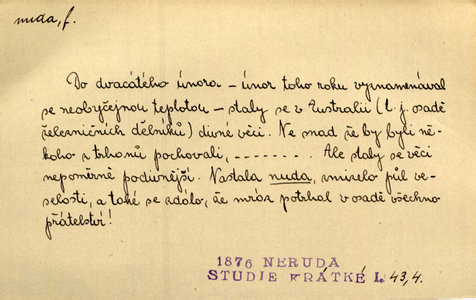 nuda, f.
Do dvacátého února – únor toho roku vyznamenával
se neobyčejnou teplotou – staly se v Eustralii (t. j. osadě
železničních dělníků) divné věci. Ne snad že by byli ně-
koho z trhanů pochovali, ‒‒‒‒‒‒‒. Ale staly se věci
nepoměrně podivnější. Nastala nuda, zmizelo půl ve-
selosti, a také se zdálo, že mráz potrhal v osadě všechno
přátelství!
1876 NERUDA
STUDIE KRÁTKÉ I. 43,4.